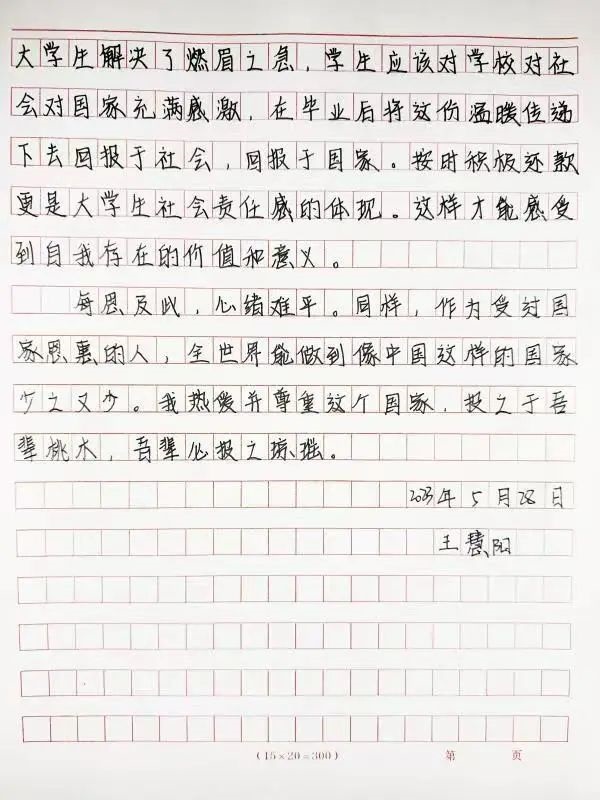 大学生解决了燃眉之急，学生应该对学校对社
会对国家充满感激，在毕业后将这份温暖传递
下去回报于社会，回报于国家。按时积极还款
更是大学生社会责任感的体现。这样才能感受
到自我存在的价值和意义。
每思及此，心绪难平。同样，作为受过国
家恩惠的人，全世界能做到像中国这样的国家
少之又少。我热爱并尊重这个国家，投之于吾
辈桃木，吾辈必报之琼瑶。
2023年5月28日
王慧阳
（15×20=300） 第 页